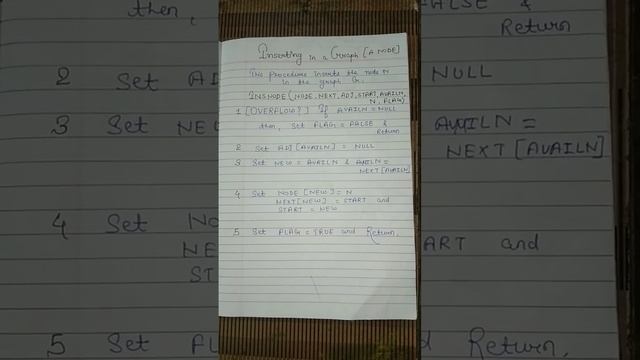 Inserting in a Graph [A NODE]
This procedure inserts the node N
in the graph G.
INSNODE (NODE, NEXT, ADJ, START, AVAILN,
N, FLAG)
1 [OVERFLOW?] If AVAILN = NULL
then, Set FLAG = FALSE &
Return
2 Set ADJ [AVAILN] = NULL
3 Set NEW = AVAILN & AVAILN =
NEXT [AVAILN]
4 Set NODE [NEW] = N
NEXT [NEW] = START and
START = NEW
5 Set FLAG = TRUE and Return.